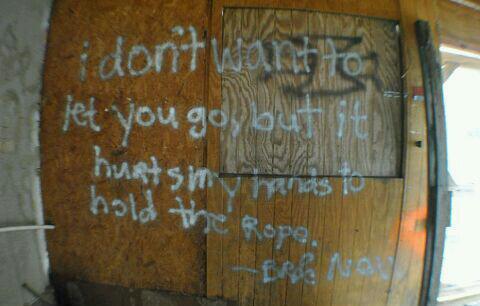 i don't want to
let you go, but it
hurts my hands to
hold the Rope.